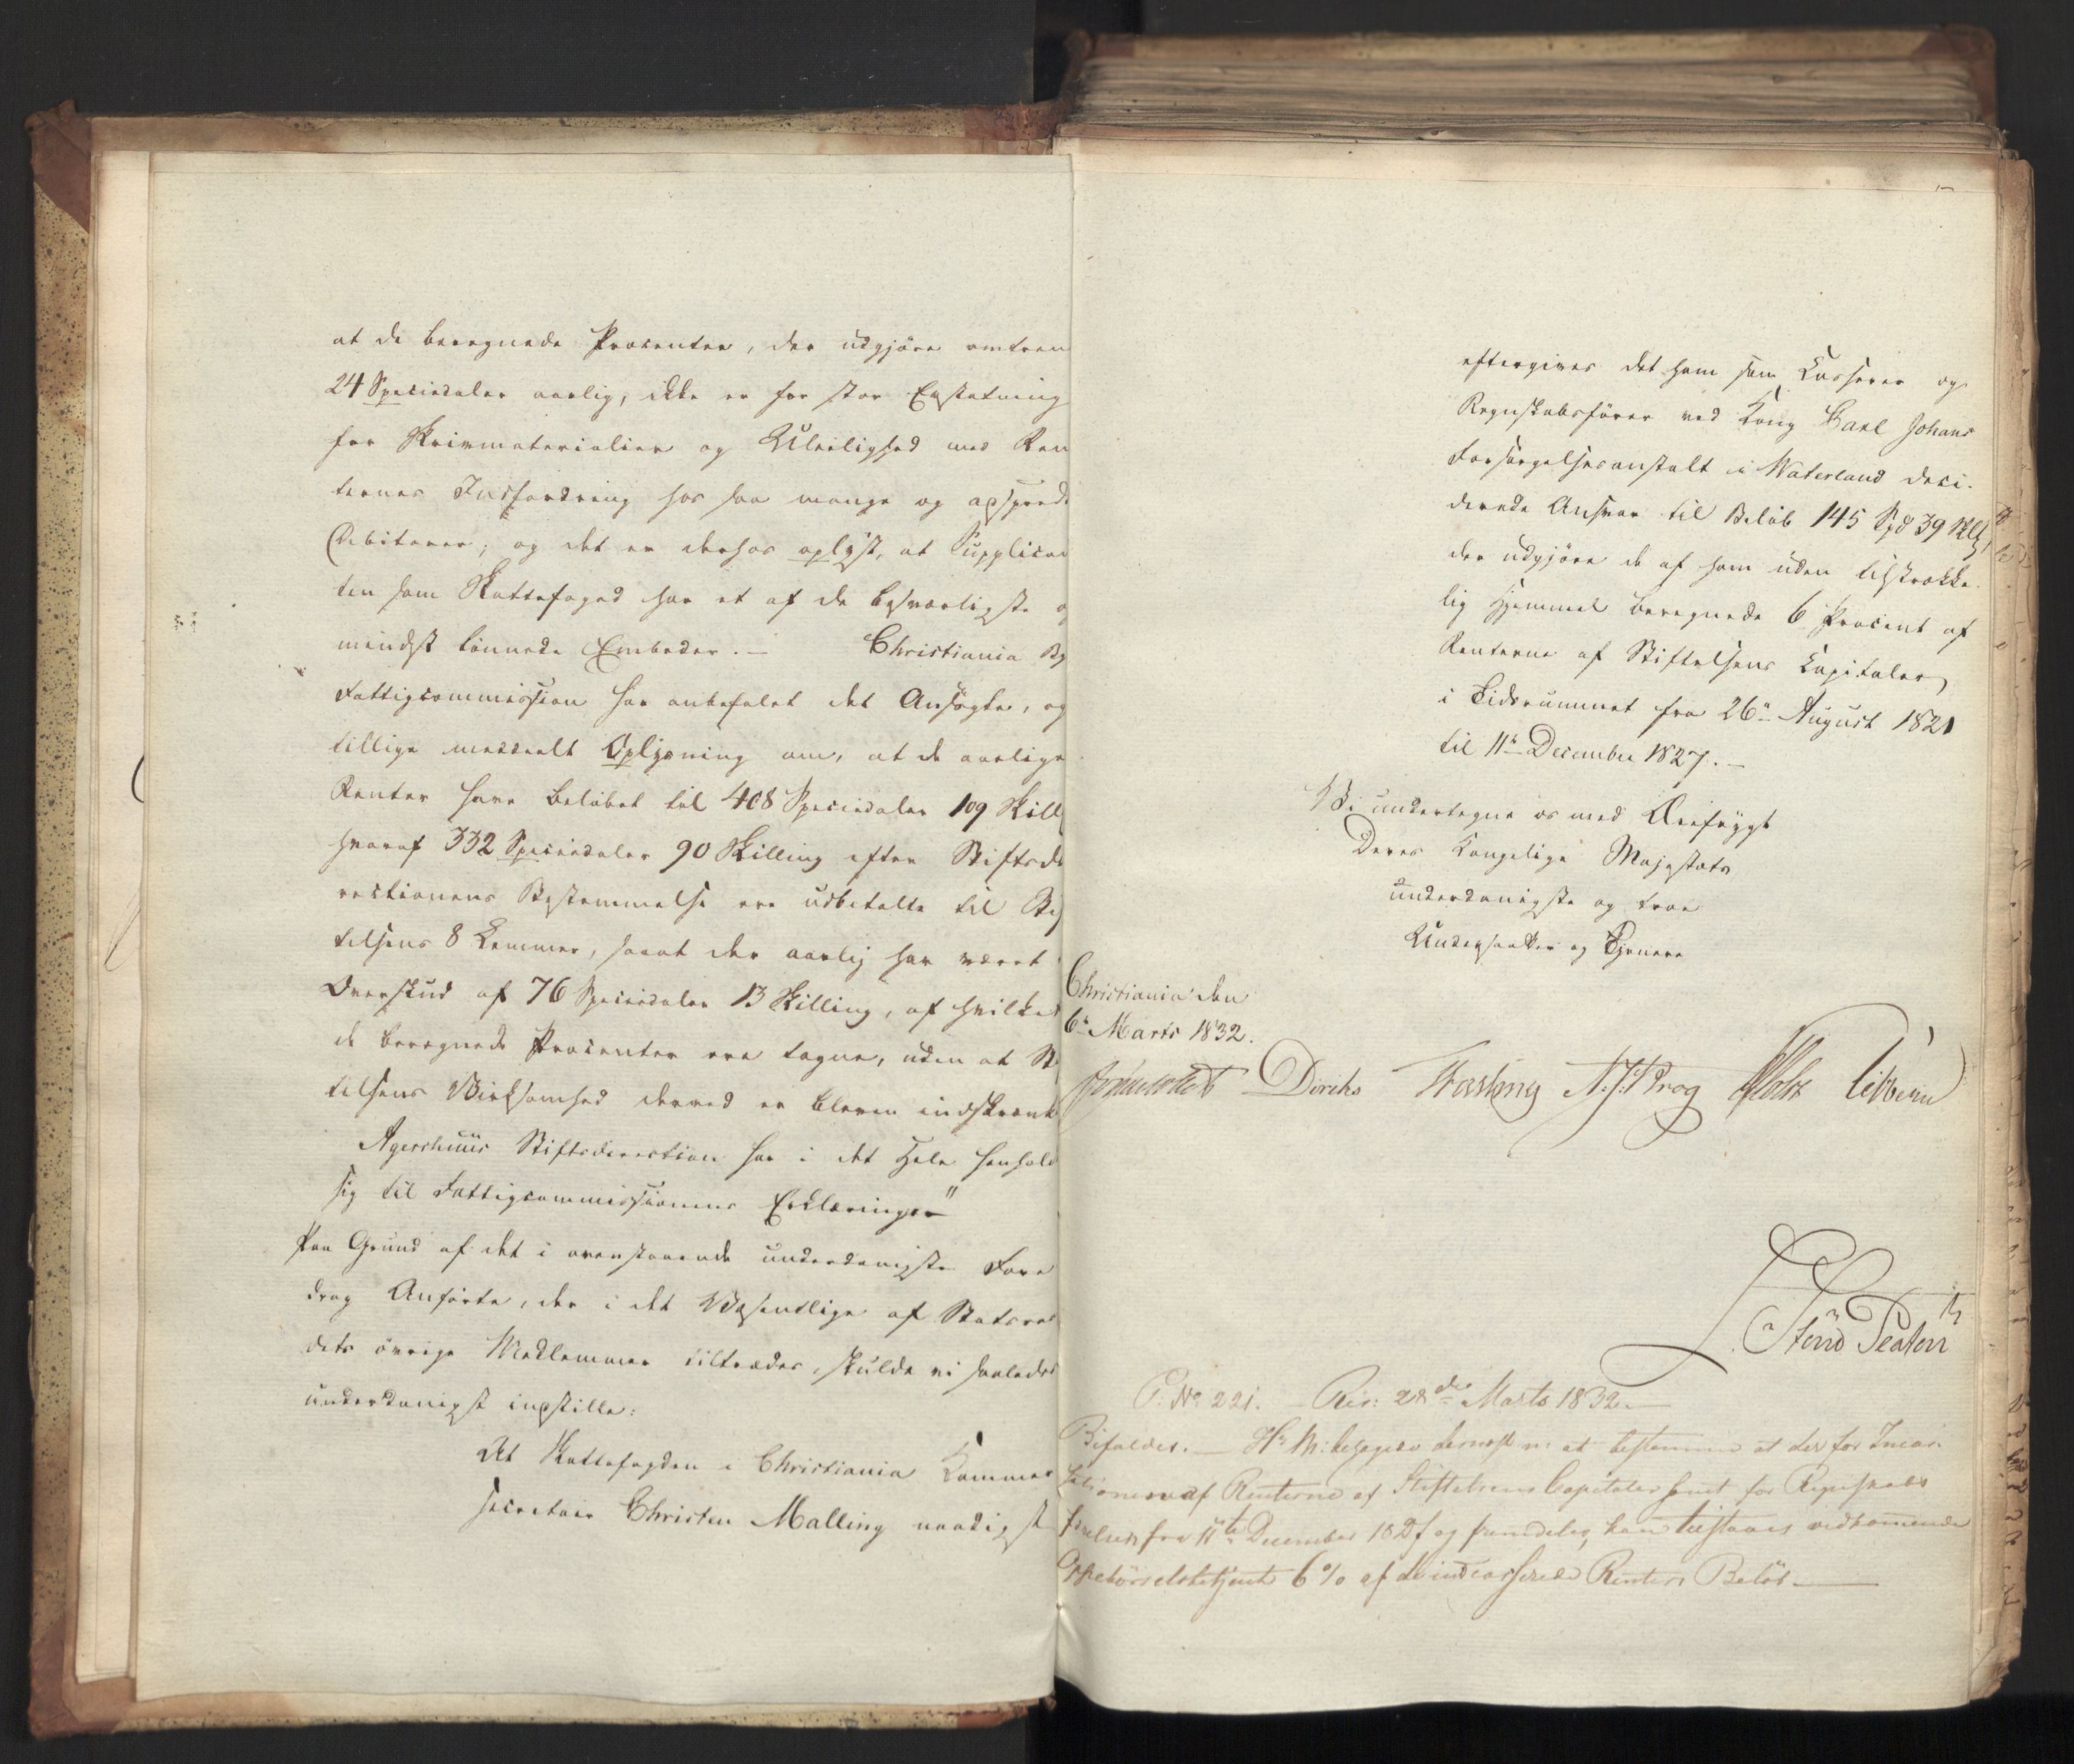 at de beregnede Procenter, der udgjöre omtren
24 Speciedaler aarlig, ikke er for stor Erstatning
for Skrivmaterialier og Uleilighed med Ren
ternes Indfordring hos saa mange og adspredt
Debitorer; og det er derhos oplyst, at Supplican
ten som Skattefoged har et af de besværligste o
mindst lönnede Embeder. — Christiania By
Fattigcommission har anbefalet det Ansögte, og
tillige meddeelt Oplysning om, at de aarlige
Renter have belöbet til 408 Speciedaler 109 Skill
hvoraf 332 Speciedaler 90 Skilling efter Stiftsdi
rectionens Bestemmelse ere udbetalte til Stif
telsens 8 Lemmer, saaat der aarlig har været
Overskud af 76 Speciedaler 13 Skilling, af hvilket
de beregnede Procenter ere tagne, uden at Sti
telsens Virksomhed derved er bleven indskrænk
Agershuus Stiftsdirection har i det Hele henhold
sig til Fattigcommissionens Erklæringer"
Paa Grund af det i ovenstaaende underdanigste Fore
drag Anförte, der i det Væsentlige af Statsraa
dets övrige Medlemmer tiltrædes, skulde vi saaledes
underdanigst indstille:
At Skattefogden i Christiania Kammer
secretair Christen Malling naadigst
eftergives det ham som Casserer og
Regnskabsförer ved Kong Carl Johans
Forsörgelsesanstalt i Waterland deci-
derede Ansvar til Belöb 145 Spd 39 Skl,
der udgjöre de af ham uden tilstrække-
lig Hjemmel beregnede 6 Procent af
Renterne af Stiftelsens Capitaler
i Tidsrummet fra 26de August 1821
til 11te December 1827. —
Vi undertegne os med Ærefrygt
Deres Kongelige Majestæts
underdanigste og troe
Undersaatter og Tjenere
Christiania den
6te Marts 1832.
Diriks Fasting N. J. Krog Holst Vibbern
P. No 221. Res: 28de Marts 1832. —
Bifaldes. — Hs M: behagede dernæst n: at bestemme at der for Incas-
sationen af Renterne af Stiftelsens Capitaler samt for Regnskabs
förelsen fra 11te December 1827 og fremdeles, kan tilstaaes vedkommende
Oppebörselsbetjent 6 % af de indcasserede Renters Belöb. —